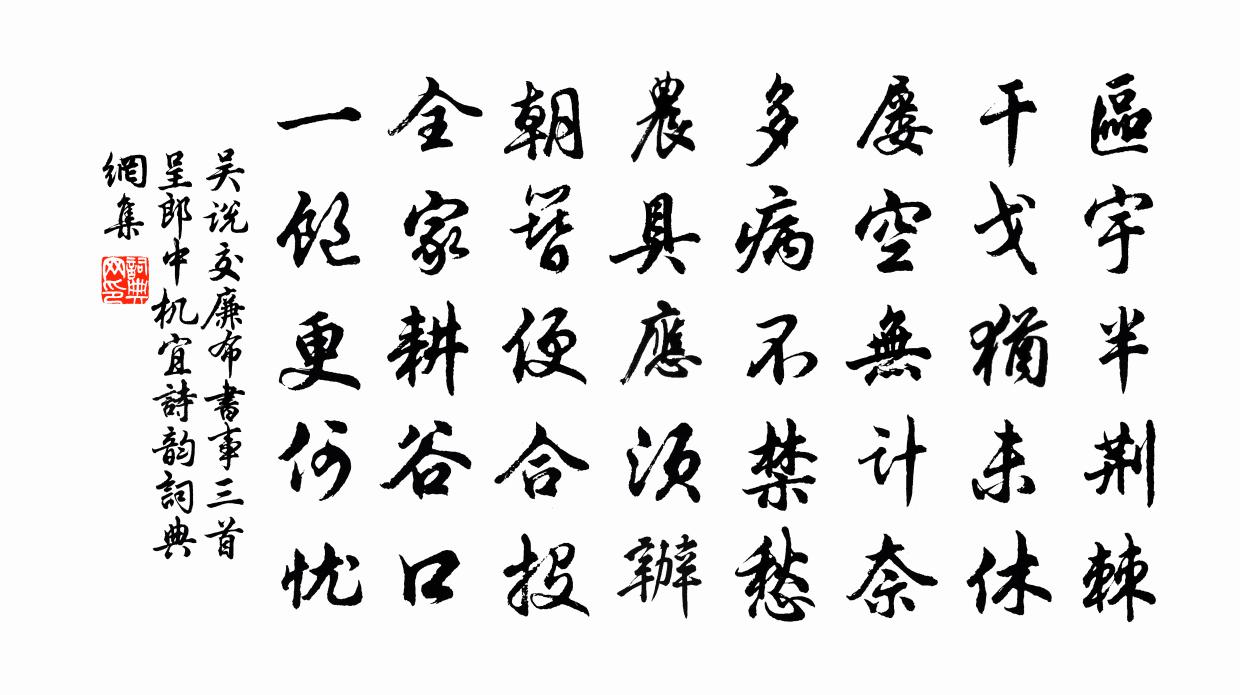 區宇半荆棘
干戈猶未休
屡空無計奈
多病不禁愁
農具應須辦
朝簪便合投
全家耕谷口
一飽更何忧
吴说交廉布書事三首
呈郎中机宜詩韵詞典
網集
詞典網印